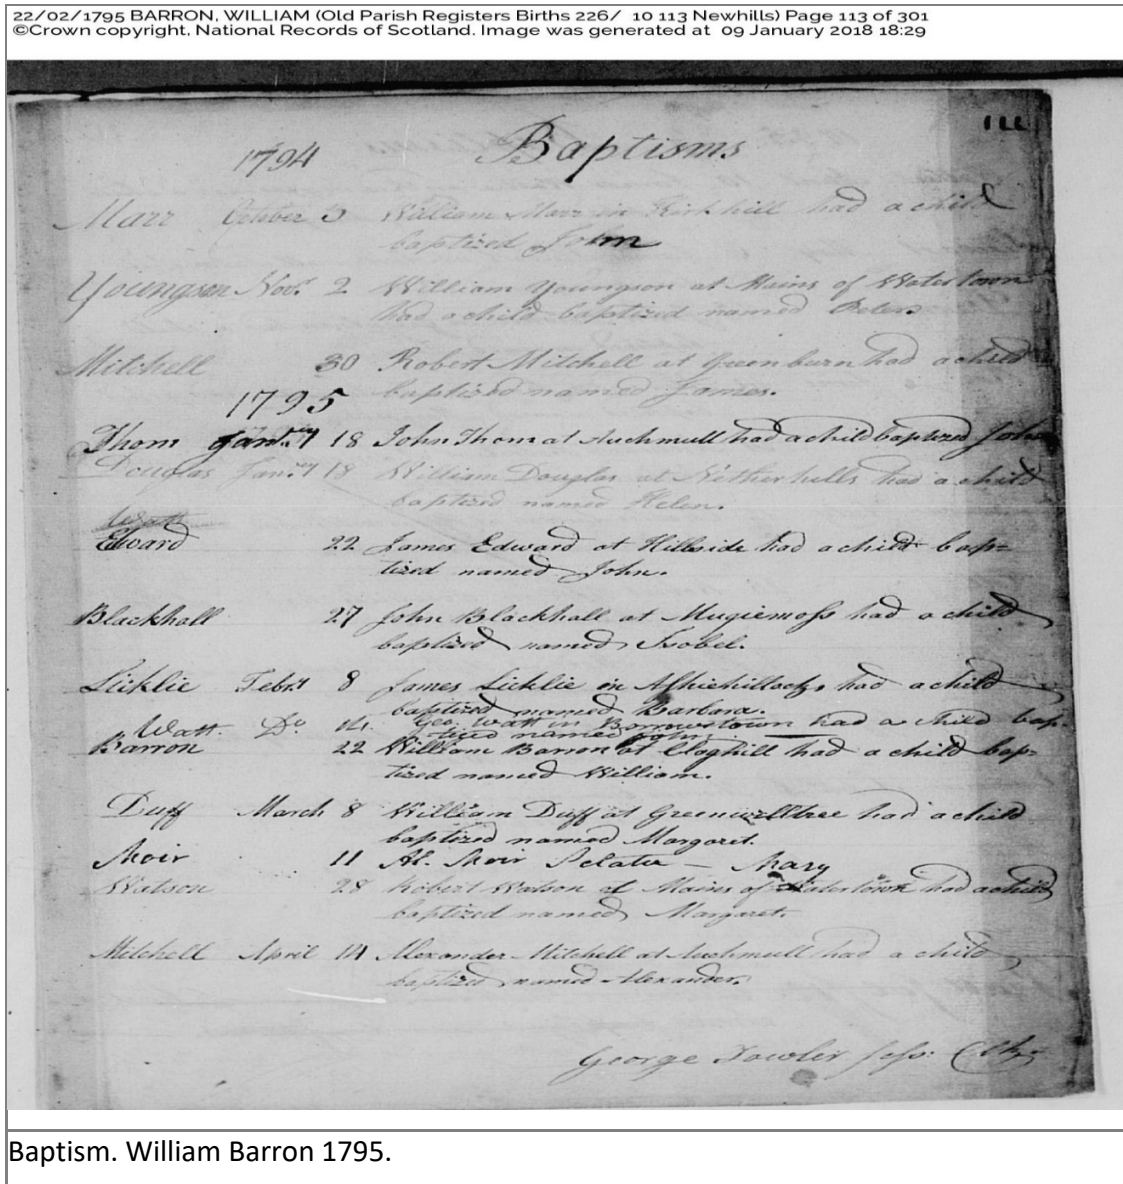 22/02/1795 BARRON, WILLIAM (Old Parish Registers Births 226/ 10 113 Newhills) Page 113 of 301
©Crown copyright, National Records of Scotland. Image was generated at 09 January 2018 18:29
1794 Baptisms
Marr October 5 William Marr in Kirkhill had a child
baptized John
Youngson Novr. 2 William Youngson at Mains of Watertown
had a child baptized named Peter.
Mitchell 30 Robert Mitchell at Greenburn had a child
baptized named James.
1795
Thom Janry 18 John Thom at Auchmull had a child baptized John
Douglas Janry 18 William Douglas at Netherhills had a child
baptized named Helen.
Watt
Edward 22 James Edward at Hillside had a child bap=
tized named John.
Blackhall 27 John Blackhall at Mugiemoss had a child
baptized named Isobel.
Licklie Febry 8 James Licklie in had a child
baptized named Barbara.
Watt. Do 14. Geo. Watt in Borrowstown had a child bap-
tized named John.
Barron 22 William Barron at Cloghill had a child bap=
tized named William.
Duff March 8 William Duff at Greenwelltree had a child
baptized named Margaret.
Moir 11 Al. Moir Sclatie — Mary
Watson 28 Robert Watson at Mains of Watertown had a child
baptized named Margaret.
Mitchell April 14 Alexander Mitchell at Auchmull had a child
baptized named Alexander.
George Fowler Sess: Clk.
Baptism. William Barron 1795.